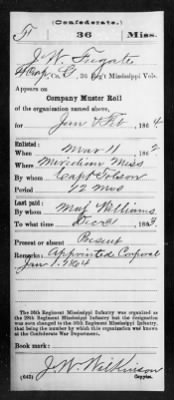 (Confederate.)
F 36 Miss.
J. W. Fugate
Corp, Co. B, 36 Reg't Mississippi Vols.
Appears on
Company Muster Roll
of the organization named above,
for Jan & Feb, 1864
Enlisted:
When Mar 11 186
Where Meridian Miss
By whom Capt
Period 12 mos
Last paid:
By whom Maj Williams
To what time Dec 31 186
Present or absent Present
Remarks: Appointed Corporal
Jan 1, 1864
The 36th Regiment Mississippi Infantry was organized as
the 28th Regiment Mississippi Infantry but the designation
was soon changed to the 36th Regiment Mississippi Infantry,
that being the number by which this organization was known at
the Confederate War Department.
Book mark:
J. W. Wilkinson
(642) Copyist.